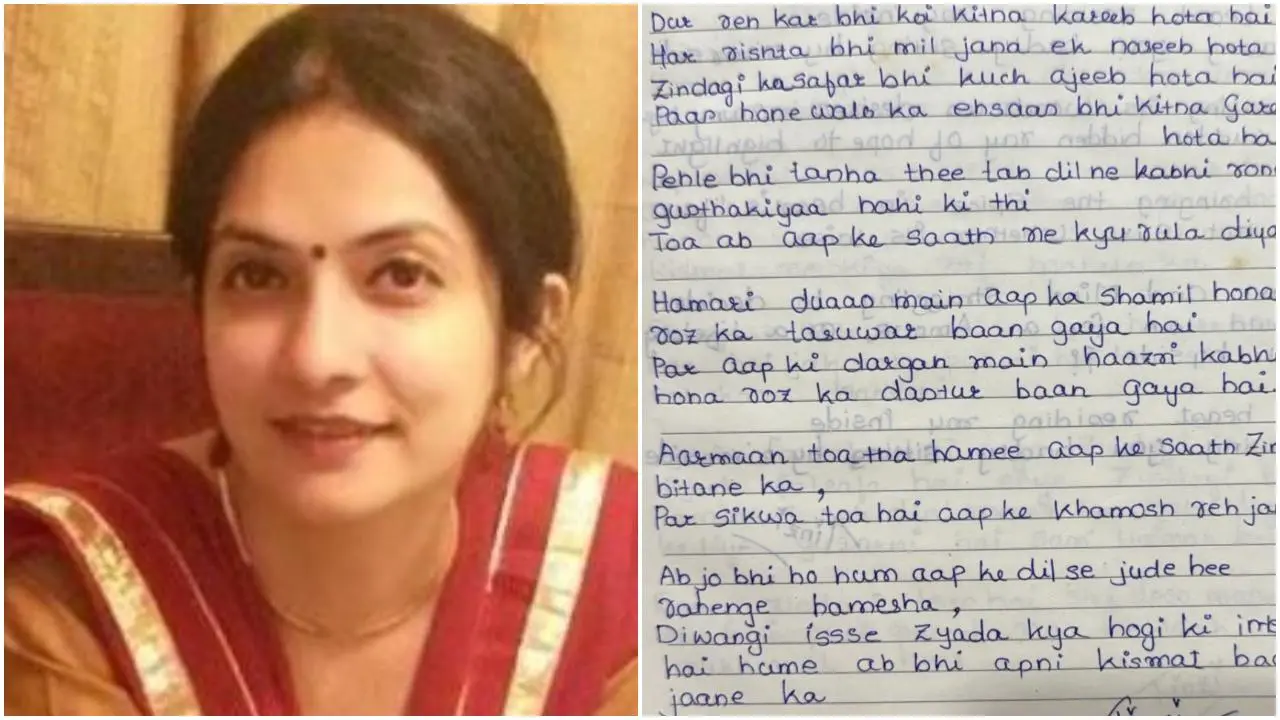 Dur reh kar bhi koi kitna kareeb hota hai
Har rishta bhi mil jana ek naseeb hota
Zindagi ka safar bhi kuch ajeeb hota hai
Paas hone walo ka ehsaas bhi kitna Gare
hota ha
Pehle bhi tanha thee tab dil ne kabhi rone
gusthakiyaa nahi ki thi
Toa ab aap ke saath ne kyu rula diya
Hamari duaao main aap ka shamil hona
roz ka tasuwar baan gaya hai
Par aap ki dargah main haazri kabhi
hona roz ka dastur baan gaya hai
Aarmaan toa tha hamee aap ke saath Zin
bitane ka,
Par sikwa toa hai aap ke khamosh reh ja
Ab jo bhi ho hum aap ke dil se jude hee
rahenge hamesha,
Diwangi issse zyada kya hogi ki inte
hai hume ab bhi apni kismat bad
jaane ka